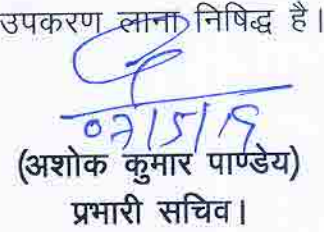 उपकरण लाना निषिद्ध है।
(अशोक कुमार पाण्डेय)
प्रभारी सचिव।